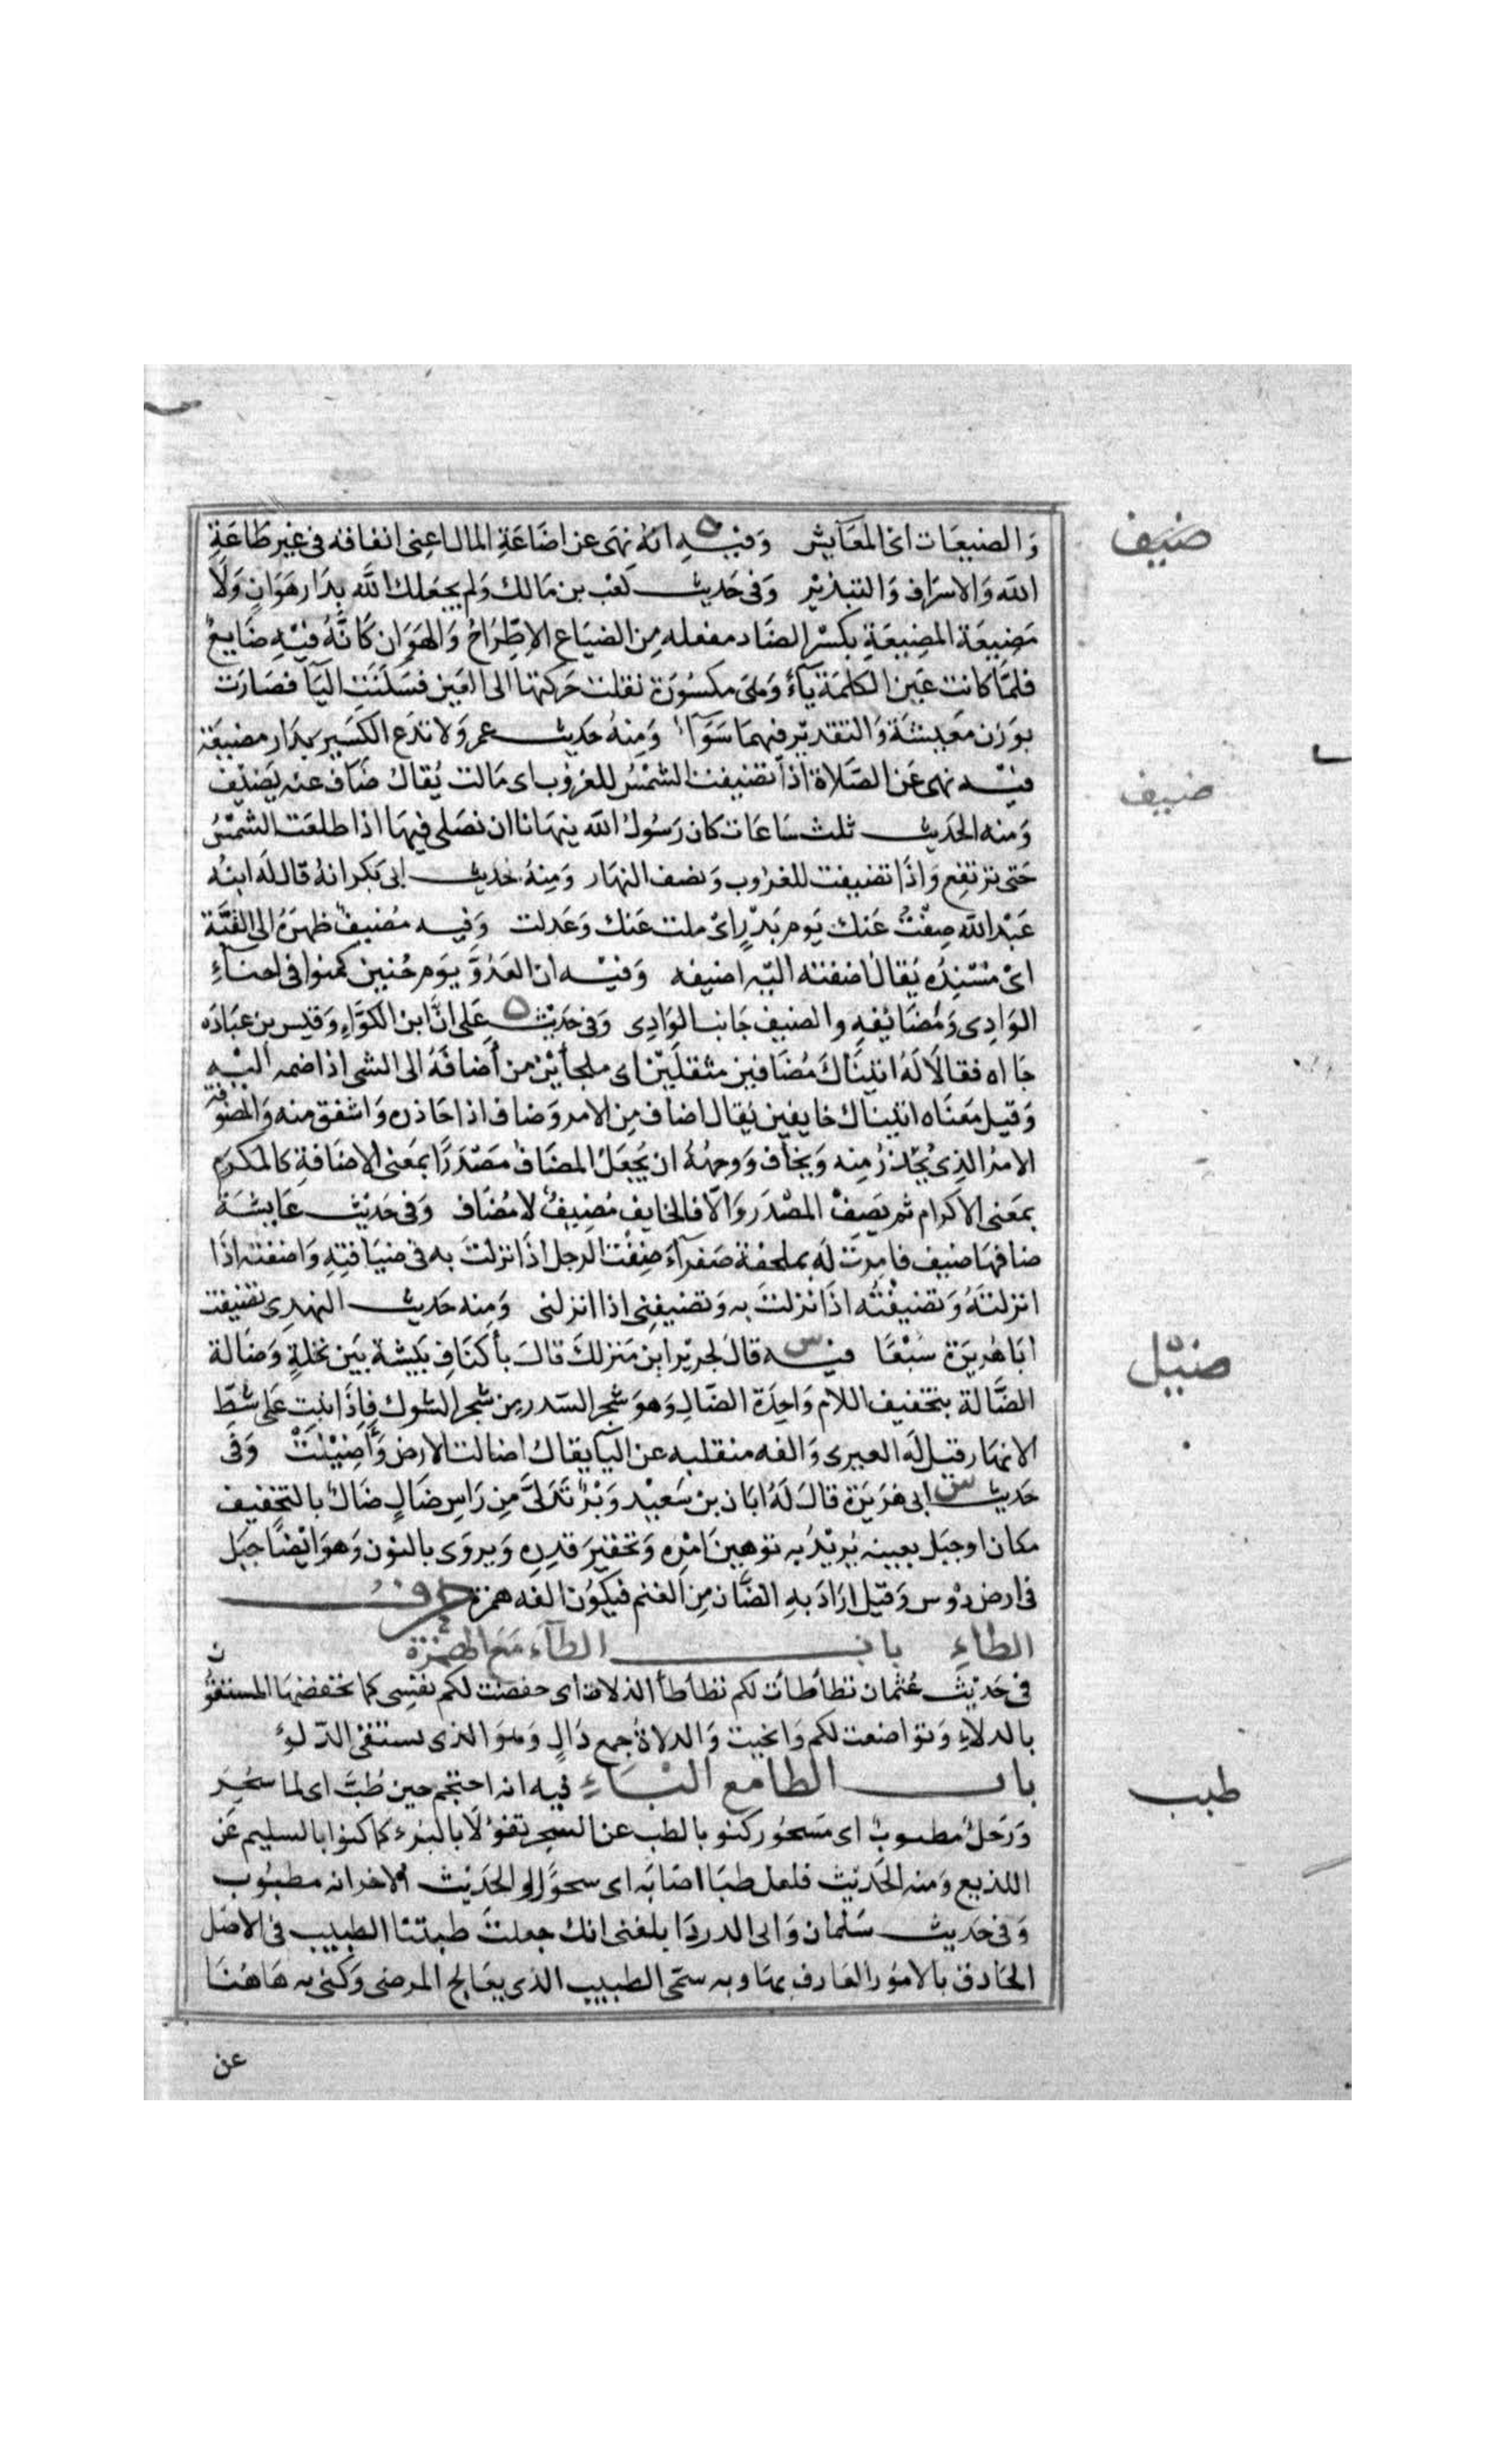 وَالضيعَات اى المعَايش وَفيْهِ ه انهُ نهَى عن اضَاعَةِ المال اعنى انفاقه فى غير طَاعَةِ
ضيف
الله وَالاسرَاف وَالتبذيرْ وَفى حَديث كعْب بن مَالك وَلم يجعَلك الله بِدَار هَوَانٍ وَلَا
مَضيعَة المضِيعَةِ بكسْر الضَاد مفعله مِن الضيَاع الاطّرَاحُ وَالهَوَان كَانَّهُ فيْهِ ضَايعٌ
فلمَّا كانت عَين الكلمَة يآءً وَهىَ مكسُورَة نقلت حَركتها الى العَين فسَكنَتِ اليَآ فصَارَت
بوَزن مَعيشَة وَالتقديْر فيهمَا سَوَآءٌ وَمِنهُ حَديث عمر وَلا تدَع الكَسِير بدَار مضيعَة
فيْه نهى عَن الصَّلاة اذا تضيفت الشمْسُ للغرُوب اى مَالت يُقالُ ضَافَ عنه يَضيْف
ضيف
وَمنه الحَديث ثلث سَاعَات كان رَسُولُ الله ينهَانا ان نصَلى فيهَا اذا طلعَت الشمْسُ
حَتى ترْتفِع وَاذَا تضيفت للغرُوب وَنصف النهَار وَمِنهُ حَديث ابى بَكر انهُ قال لَه ابنُه
عَبْد الله ضِفْتُ عَنك يَوم بَدْرٍ اىْ ملت عَنك وَعَدلت وَفيه مُضيفٌ ظهرَهُ الى القبَّة
اىْ مسْنِدُه يُقالُ اضفته اليْه اضيفه وَفيْه ان العَدُوَّ يَوم حُنين كمنوا فى احنآءِ
الوَادِى وَمَضَايفِهِ والضيف جَانب الوَادِى وَفى حَديْث ه عَلى انَّ ابن الكَوَّاءِ وَقيس بن عبَادَه
جَااه فقالَا لَهُ اتينَاكَ مُضَافين مثقلَيْن اى ملجأيْن من أضافَهُ الى الشى اذا ضمه اليْه
وَقيل مَعنَاه اتيناك خايفين يُقال اضاف مِن الامر وَضاف اذا حَاذره وَاشفق منه وَالمضوفَه
الامْر الذِى يُحَاذرُ مِنه وَيخاف وَوجهُهُ ان يُجعَل المضَافُ مَصْدرًا بمَعنى الاضَافة كالمكرَم
بمَعنى الاكرام ثم يَصِفْ المصْدَر وَالّا فالخايف مُضِيفٌ لا مُضَاف وَفى حَديْث عَايشَة
ضافهَا ضَيف فامرت لَه بملحفة صَفرآءَ ضِفْت الرجل اذَا نزلتَ به فى ضيَافتِهِ وَاضفته اذَا
انزلتَهُ وَتضيفْتُه اذَا نزلتَ به وَتضيفنى اذا انزلنى وَمِنه حَديث النهدى تضيفت
ابَا هُريَرَة سَبْعًا فيْه س قالَ لجريْر اين مَنزلكَ قالَ بأكنَافِ بَيْشة بَين نخلةٍ وَضالة
ضيل
الضَّالة بتخفيف اللام وَاحِدَة الضَّالِ وَهوَ شجر السّدر مِن شجر الشوك فاِذَا نبت عَلى شطِّ
الانهَار قيل لَه العبرى وَالفه منقلبه عن اليَآ يقالُ اضالت الارض وَأَضيَلَتْ وَفى
حَديث س ابى هُرَيرَة قالَ لَهُ ابَان بن سَعيْد وَبْرٌ تَدَلّىَ مِن رَاسِ ضَالٍ ضَالٌ بالتخفيف
مكان اوجبَل بعينه يُريْدُ به توهينَ امْرِه وَتحقيرَ قدرِه وَيروَى بالنون وَهوَ ايْضًا جبَل
فى ارض دَوْس وَقيل ارَادَ بهِ الضَّان مِن الغنم فيكوُن الفه همزة حرف
الطاءِ باب الطآء مَعَ الهَمْزة
فى حَديْث ن عُثمان تطأطأت لكم تطأطأ الدلاة اى حفضت لكم نفسى كما يخفضهَا المستقوُّ
بالدلاءِ وَتواضعت لكم وَانحيت وَالدلاةُ جمع دَالٍ وَهوَ الذى يستقى الدّلوَ
باب الطا مع البَاءِ فيه انه احتجم حين طُبَّ اى لما سُحِرَ
طبب
وَرَجلٌ مطبوبٌ اى مَسحُور كنو بالطب عن السّحِر تفوُّلَا بالبُرء كما كنوا بالسليم عَن
اللديع وَمنه الحَديْث فلعل طبَا اصَابَه اى سحرًا والحَديْث الاخر انه مطبُوب
وَفى حَديث سَلمان وَابى الدردَا بلغنى انك جعلتَ طبيبًا الطبيب فى الاصْل
الحَاذق بالامُور العَارف بهَا وبه سمّى الطبيب الذى يعَالج المرضى وَكنى به هَاهُنَا
عن